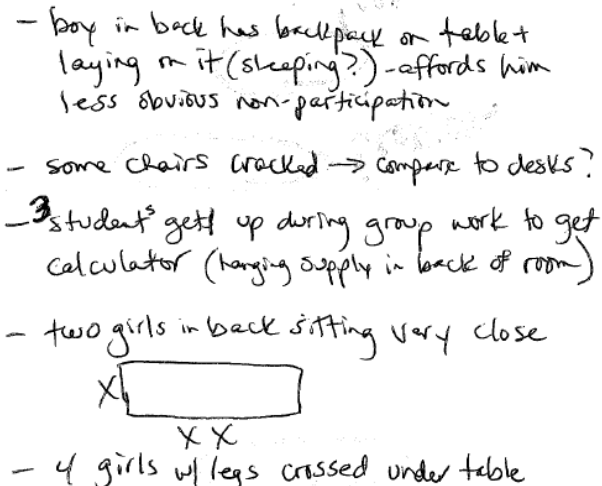 - boy in back has backpack on table +
laying on it (sleeping?) - affords him
less obvious non-participation
- some chairs cracked → compare to desks?
- 3 students get up during group work to get
calculator (hanging supply in back of room)
- two girls in back sitting very close
X
X X
- 4 girls w/ legs crossed under table